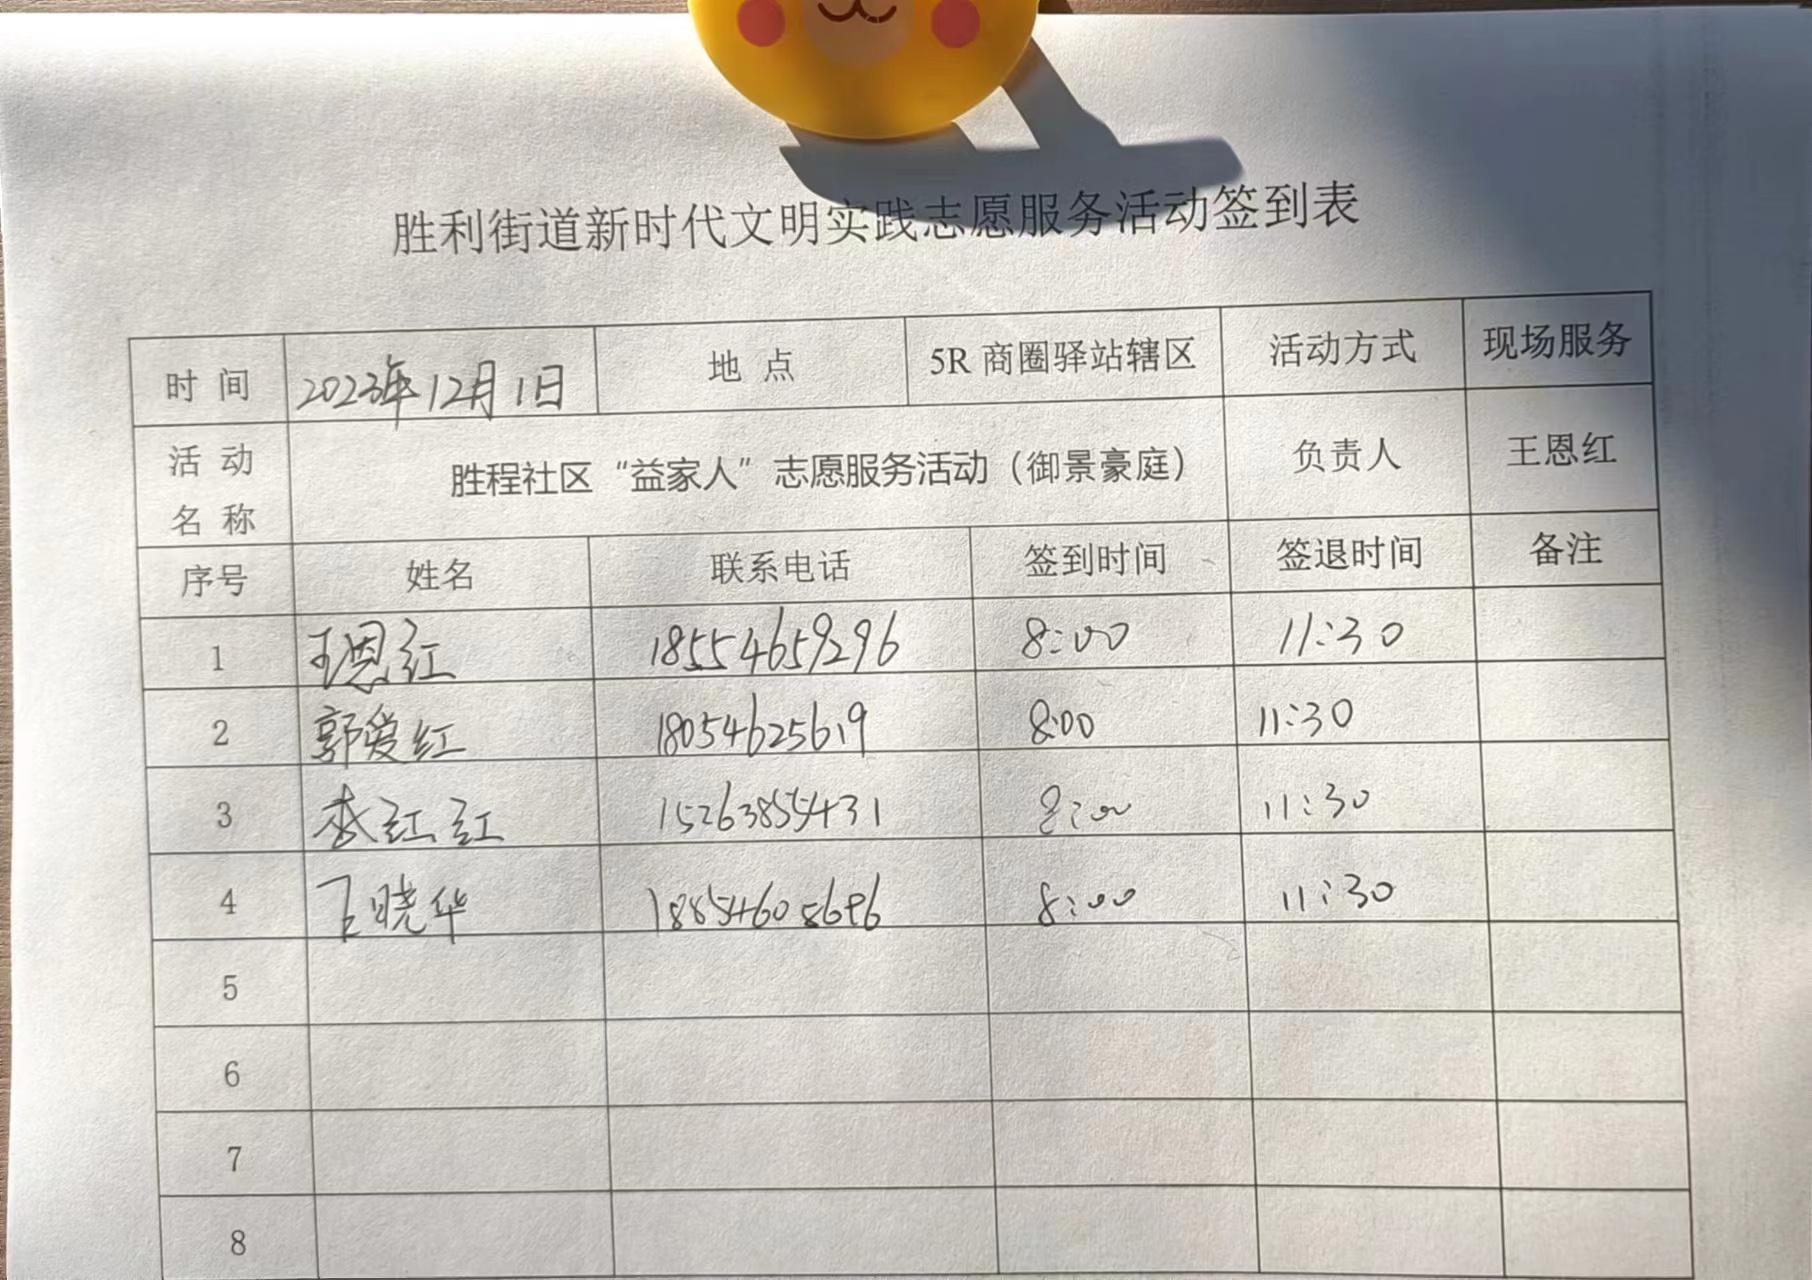 胜利街道新时代文明实践志愿服务活动签到表
时 间 2023年12月1日 地 点 5R 商圈驿站辖区 活动方式 现场服务
活 动 名 称 胜程社区“益家人”志愿服务活动（御景豪庭） 负责人 王恩红
序号 姓名 联系电话 签到时间 签退时间 备注
1 王恩红 18554659296 8:00 11:30
2 郭爱红 18054625619 8:00 11:30
3 李红红 15263855431 8:00 11:30
4 王晓华 8:00 11:30
5
6
7
8